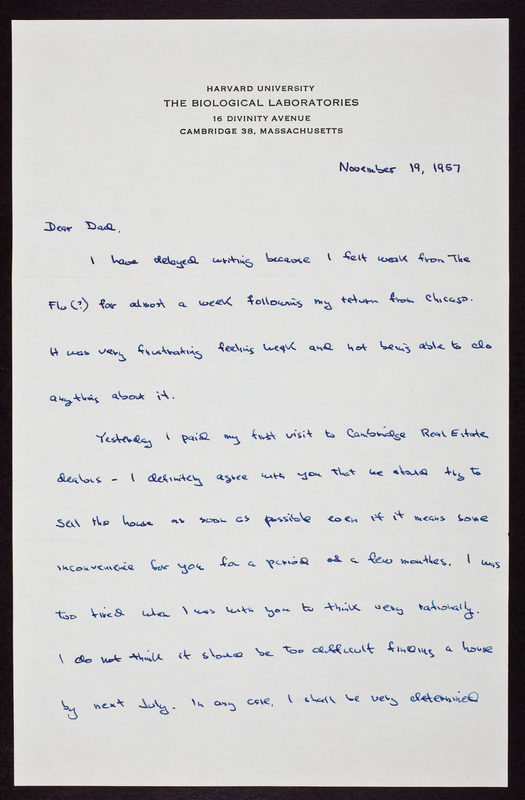 HARVARD UNIVERSITY
THE BIOLOGICAL LABORATORIES
16 DIVINITY AVENUE
CAMBRIDGE 38, MASSACHUSETTS
November 19, 1957
Dear Dad,
I have delayed writing because I felt weak from The
Flu (?) for almost a week following my return from Chicago.
It was very frustrating feeling weak and not being able to do
anything about it.
Yesterday I paid my first visit to Cambridge Real Estate
dealers - I definitely agree with you that we should try to
sell the house as soon as possible even if it means some
inconvenience for you for a period of a few monthes. I was
too tired when I was with you to think very rationally.
I do not think it should be too difficult finding a house
by next July. In any case, I shall be very determined